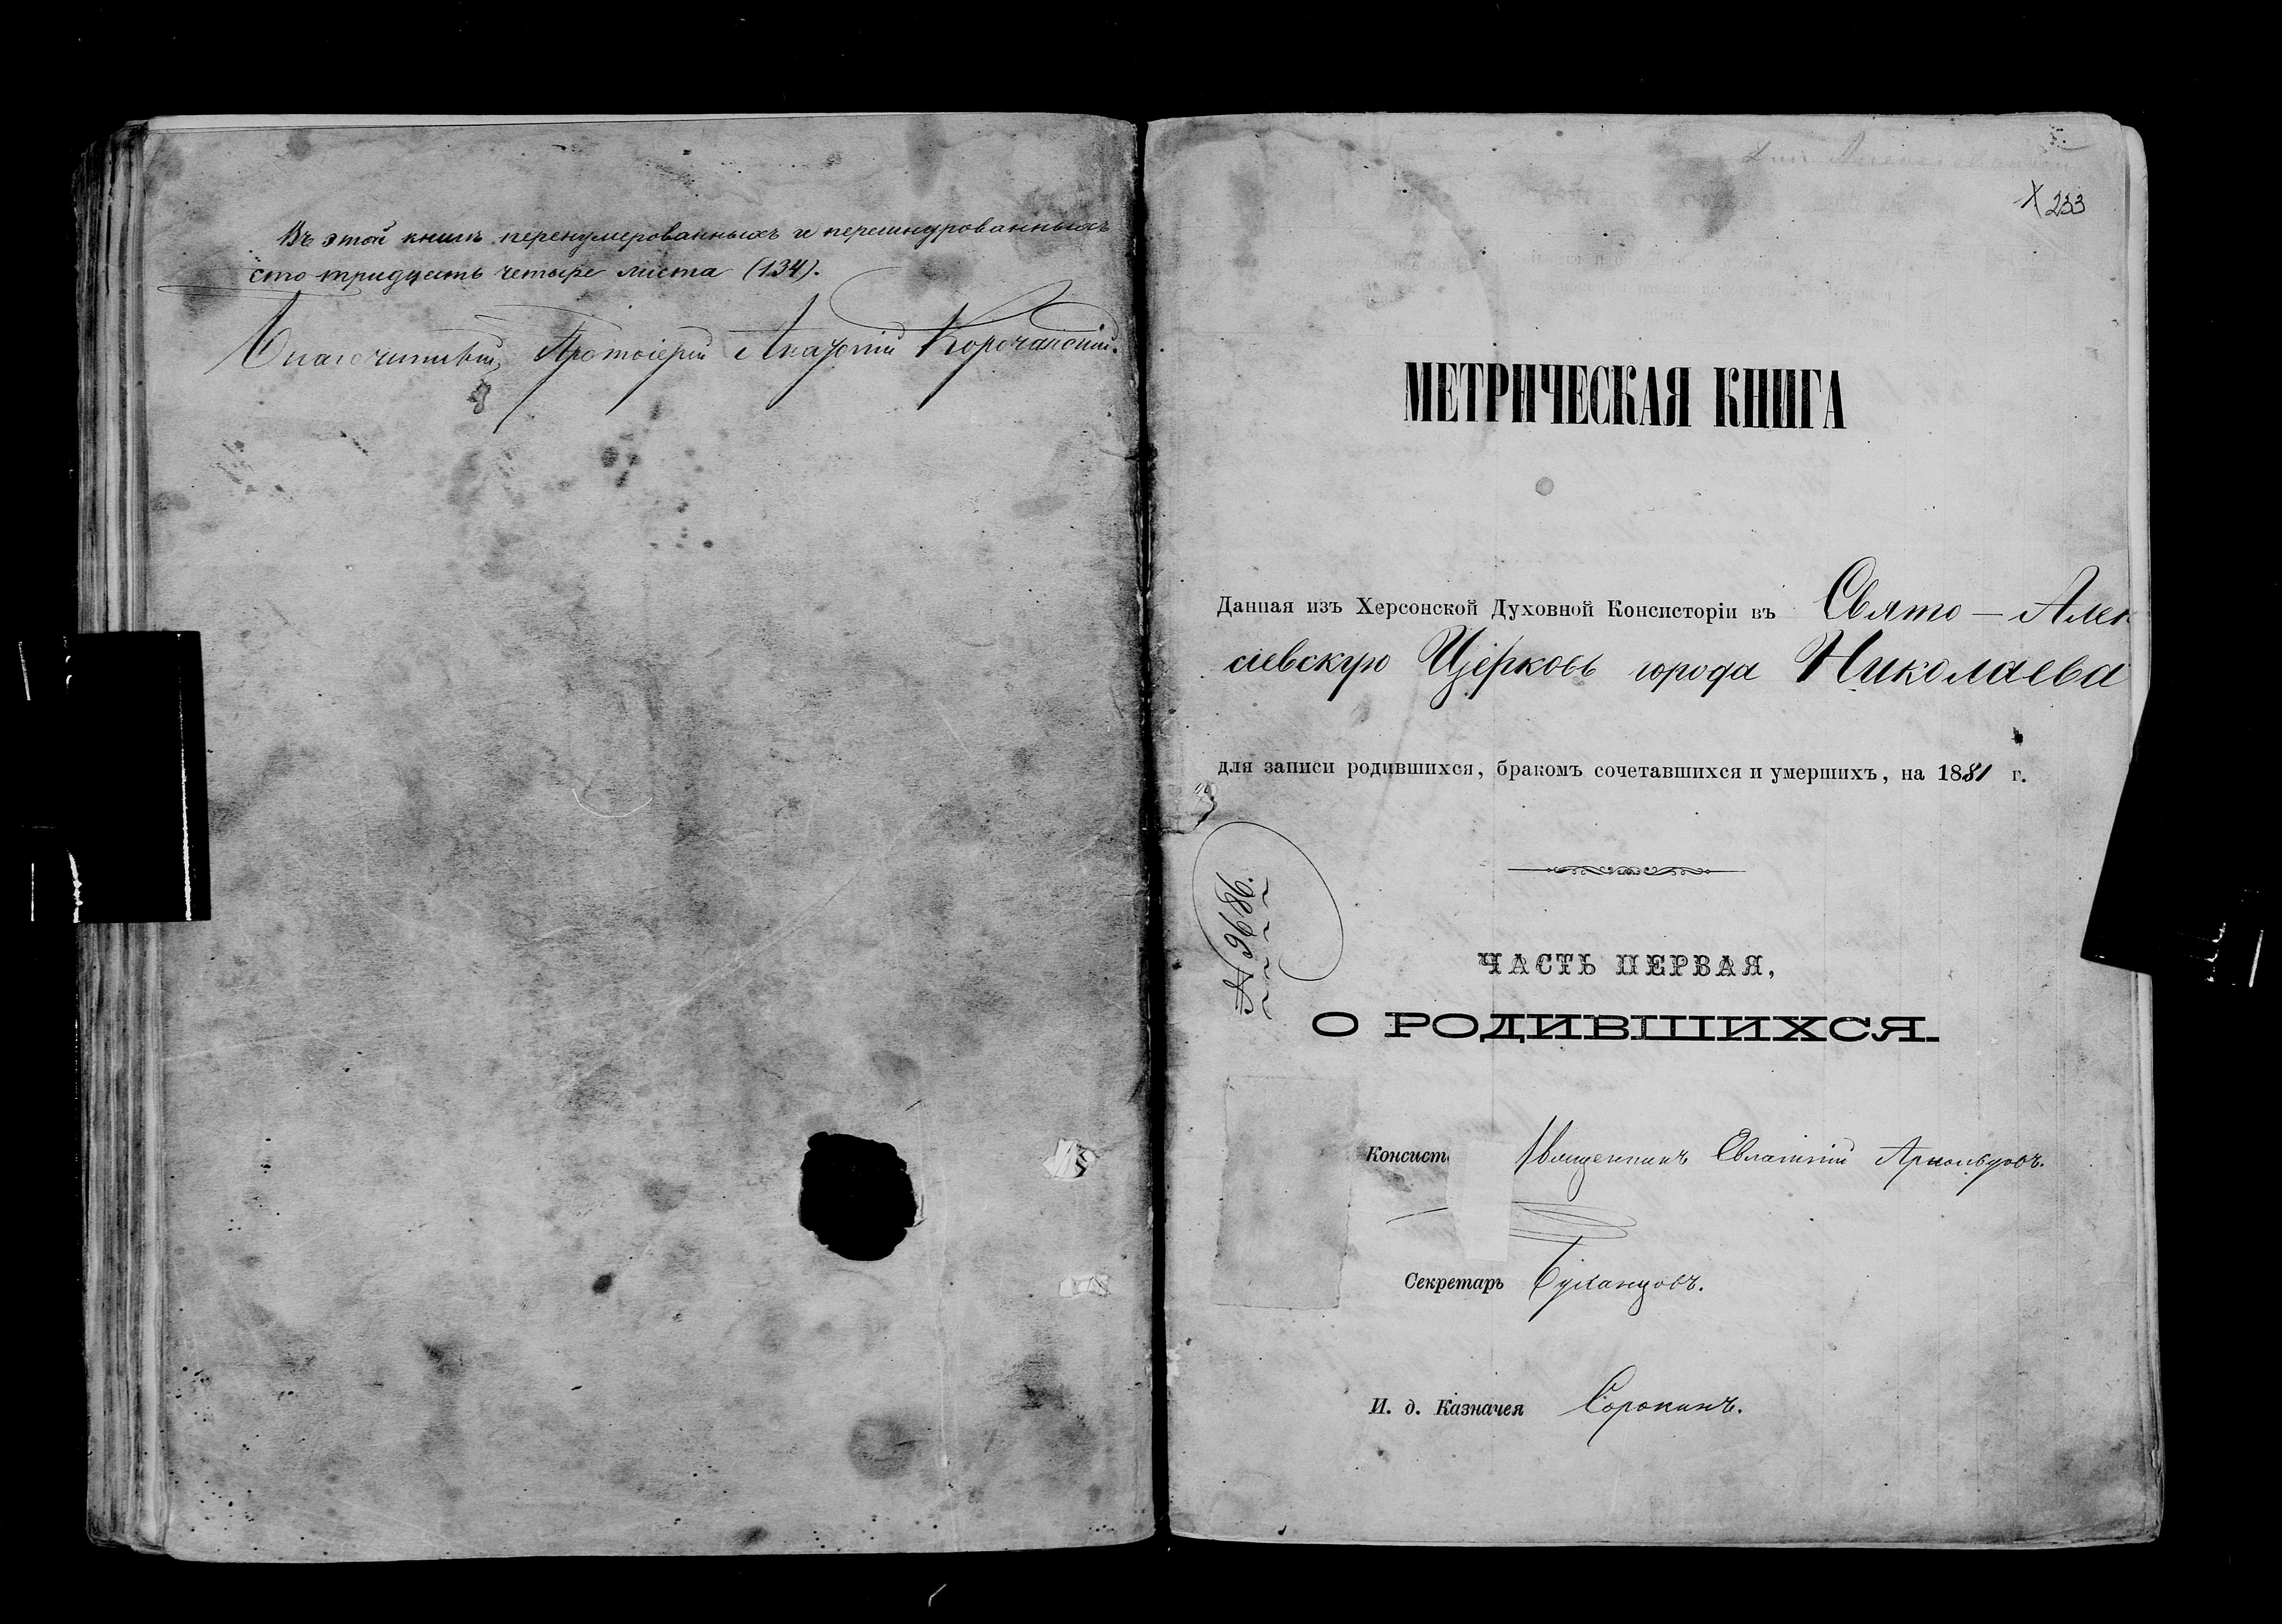 Въ этой книгѣ перенумерованныхъ и перешнурованныхъ
сто тридцать четыре листа (134).
Благочинный, Протоіерей Корочанскій.
233
МЕТРИЧЕСКАЯ КНИГА
Данная изъ Херсонской Духовной Консисторіи въ Свято-Алек
сіевскую Церковь города Николаева
для записи родившихся, бракомъ сочетавшихся и умершихъ, на 1881 г.
№ 9686.
ЧАСТЬ ПЕРВАЯ,
О РОДИВШИХСЯ.
Консист Священникъ Арнольдовъ.
Секретарь
И. д. Казначея Сорокинъ.